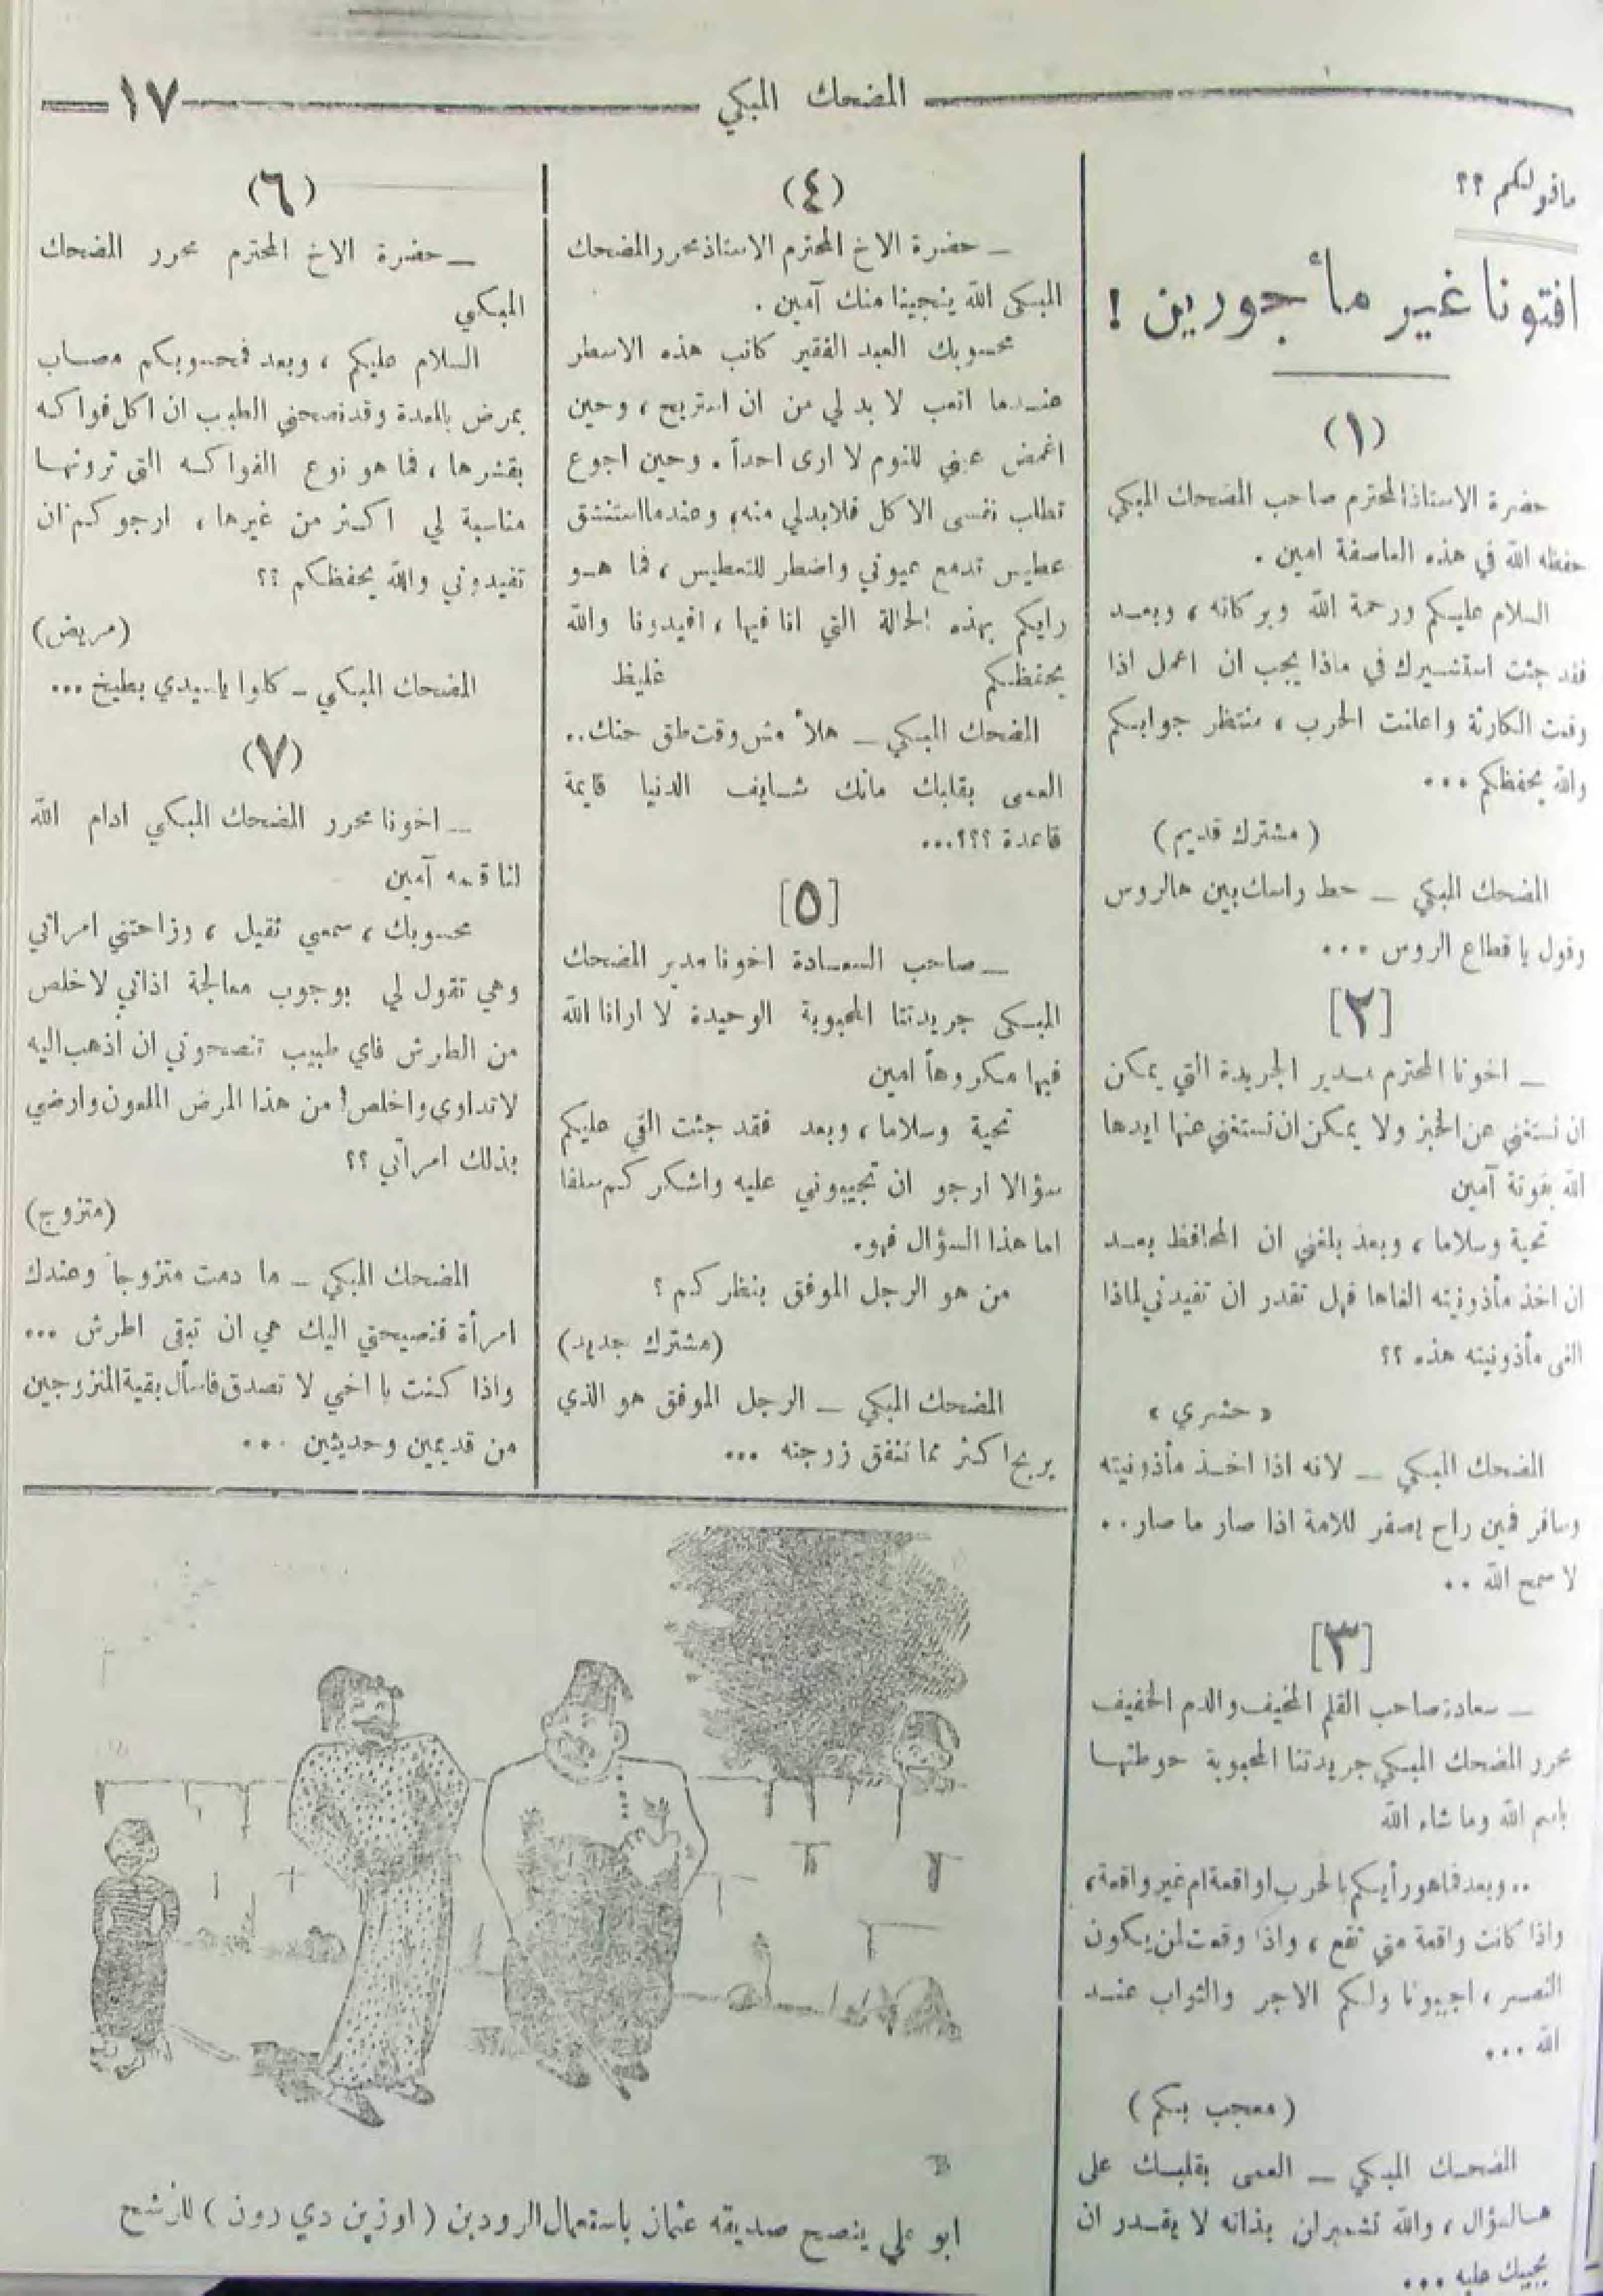 المضحك المبكي
١٧
ما قولكم ؟؟
افتونا غير مأجورين !
(١)
حضرة الاستاذ المحترم صاحب المضحك المبكي
حفظه الله في هذه العاصفة امين .
السلام عليكم ورحمة الله وبركاته ، وبعد
فقد جئت استشيرك في ماذا يجب ان اعمل اذا
وقعت الكارثة واعلنت الحرب ، منتظر جوابكم
والله يحفظكم ...
( مشترك قديم )
المضحك المبكي ــ حط راسك بين هالروس
وقول يا قطاع الروس ...
[٢]
ــ اخونا المحترم مدير الجريدة التي يمكن
ان نستغني عن الخبز ولا يمكن ان نستغني عنها ايدها
الله بقوته آمين
تحية وسلاما ، وبعد بلغني ان المحافظ بعد
ان اخذ مأذونيته الغاها فهل تقدر ان تفيدني لماذا
الغى مأذونيته هذه ؟؟
« حشري »
المضحك المبكي ــ لانه اذا اخذ مأذونيته
وسافر فمين راح يصفر للامة اذا صار ما صار ..
لا سمح الله ..
[٣]
ــ سعادة صاحب القلم المخيف والدم الخفيف
محرر المضحك المبكي جريدتنا المحبوبة حوطتها
باسم الله وما شاء الله
.. وبعد فما هو رأيكم بالحرب او اقعة ام غير واقعة ،
واذا كانت واقعة متى تقع ، واذا وقعت لمن يكون
النصر ، اجيبونا ولكم الاجر والثواب عند
الله ...
( معجب بكم )
المضحك المبكي ــ العمى بقلبك على
هالسؤال ، والله تشمبرلن بذاته لا يقدر ان
يجيبك عليه ...
(٤)
ــ حضرة الاخ المحترم الاستاذ محرر المضحك
المبكى الله ينجينا منك آمين .
محسوبك العبد الفقير كاتب هذه الاسطر
عندما اتعب لا بد لي من ان استريح ، وحين
اغمض عيني للنوم لا ارى احداً . وحين اجوع
تطلب نفسى الاكل فلا بد لي منه ، وعندما استنشق
عطيس تدمع عيوني واضطر للتعطيس ، فما هو
رايكم بهذه الحالة التي انا فيها ، افيدونا والله
يحفظكم غليظ
المضحك المبكي ــ هلأ مش وقت طق حنك ..
العمى بقلبك مانك شايف الدنيا قايمة
قاعدة ؟؟؟...
[٥]
ــ صاحب السعادة اخونا مدير المضحك
المبكى جريدتنا المحبوبة الوحيدة لا ارانا الله
فيها مكروهاً امين
تحية وسلاما ، وبعد فقد جئت القي عليكم
سؤالا ارجو ان تجيبوني عليه واشكركم سلفا
اما هذا السؤال فهو.
من هو الرجل الموفق بنظركم ؟
(مشترك جديد)
المضحك المبكي ــ الرجل الموفق هو الذي
يربح اكثر مما تنفق زوجته ...
(٦)
ــ حضرة الاخ المحترم محرر المضحك
المبكي
السلام عليكم ، وبعد فمحسوبكم مصاب
بمرض بالمعدة وقد نصحني الطبيب ان اكل فواكه
بقشرها ، فما هو نوع الفواكه التي ترونها
مناسبة لي اكثر من غيرها ، ارجوكم ان
تفيدوني والله يحفظكم ؟؟
(مريض)
المضحك المبكي ــ كلوا يا سيدي بطيخ ...
(٧)
ــ اخونا محرر المضحك المبكي ادام الله
لنا آمين
محسوبك ، سمعي ثقيل ، وزاحتني امرأتي
وهي تقول لي بوجوب معالجة اذاني لاخلص
من الطرش فاي طبيب تنصحوني ان اذهب اليه
لاتداوى واخلص من هذا المرض الملعون وارضي
بذلك امرأتي ؟؟
(متزوج)
المضحك المبكي ــ ما دمت متزوجاً وعندك
امرأة فنصيحتي اليك هي ان تبقى اطرش ...
واذا كنت يا اخي لا تصدق فاسأل بقية المتزوجين
من قديمين وحديثين ...
ابو علي ينصح صديقه عثمان باستعمال الرودين ( اوزين دي رون ) للرشح